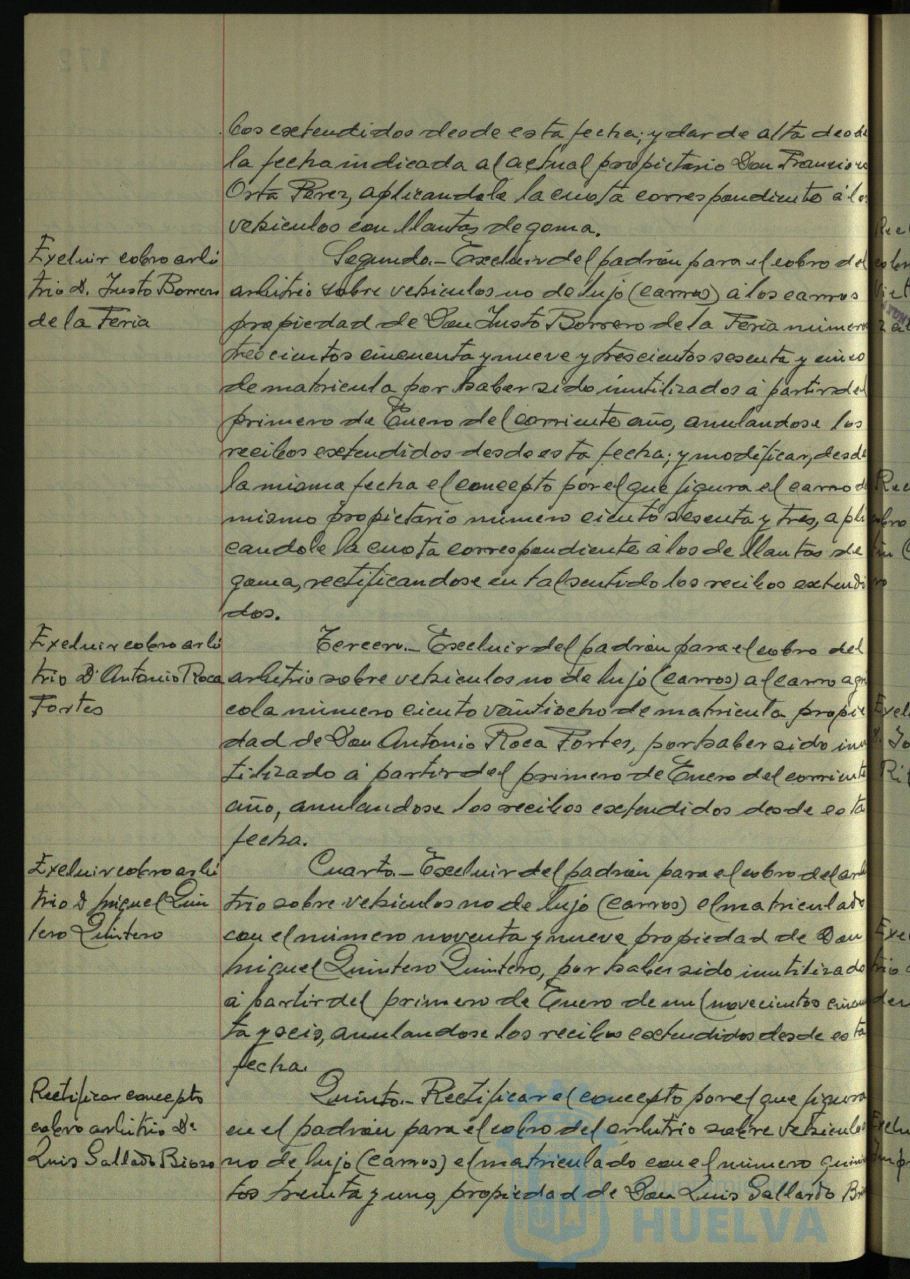 bos extendidos desde esta fecha; y dar de alta desde
la fecha indicada al actual propietario Don Francisco
Orta Perez, aplicandole la cuota correspondiente á los
vehiculos con llantas de goma.
Excluir cobro arbi
trio D. Justo Borrero
de la Feria
Segundo.- Excluir del padrón para el cobro del
arbitrio sobre vehiculos no de lujo (carros) á los carros
propiedad de Don Justo Borrero de la Feria número
trescientos cincuenta y nueve y trescientos sesenta y cinco
de matricula por haber sido inutilizados á partir del
primero de Enero del corriente año, anulandose los
recibos extendidos desde esta fecha; y modificar, desde
la misma fecha el concepto por el que figura el carro del
mismo propietario número ciento sesenta y tres, apli
candole la cuota correspondiente á los de llantas de
goma, rectificandose en tal sentido los recibos extendi
dos.
Excluir cobro arbi
trio D. Antonio Roca
Fortes
Tercero.- Excluir del padrón para el cobro del
arbitrio sobre vehiculos no de lujo (carros) al carro agri
cola número ciento veintiocho de matricula propie
dad de Don Antonio Roca Fortes, por haber sido inu
tilizado á partir del primero de Enero del corriente
año, anulandose los recibos extendidos desde esta
fecha.
Excluir cobro arbi
trio D. Miguel Quin
tero Quintero
Cuarto.- Excluir del padrón para el cobro del arbi
trio sobre vehiculos no de lujo (carros) el matriculado
con el número noventa y nueve propiedad de Don
Miguel Quintero Quintero, por haber sido inutilizado
á partir del primero de Enero de mil novecientos cincuen
ta y seis, anulandose los recibos extendidos desde esta
fecha.
Rectificar concepto
cobro arbitrio D.
Luis Gallardo Bioso
Quinto.- Rectificar el concepto por el que figura
en el padrón para el cobro del arbitrio sobre vehiculos
no de lujo (carros) el matriculado con el número quinien
tos treinta y uno, propiedad de Don Luis Gallardo
HUELVA